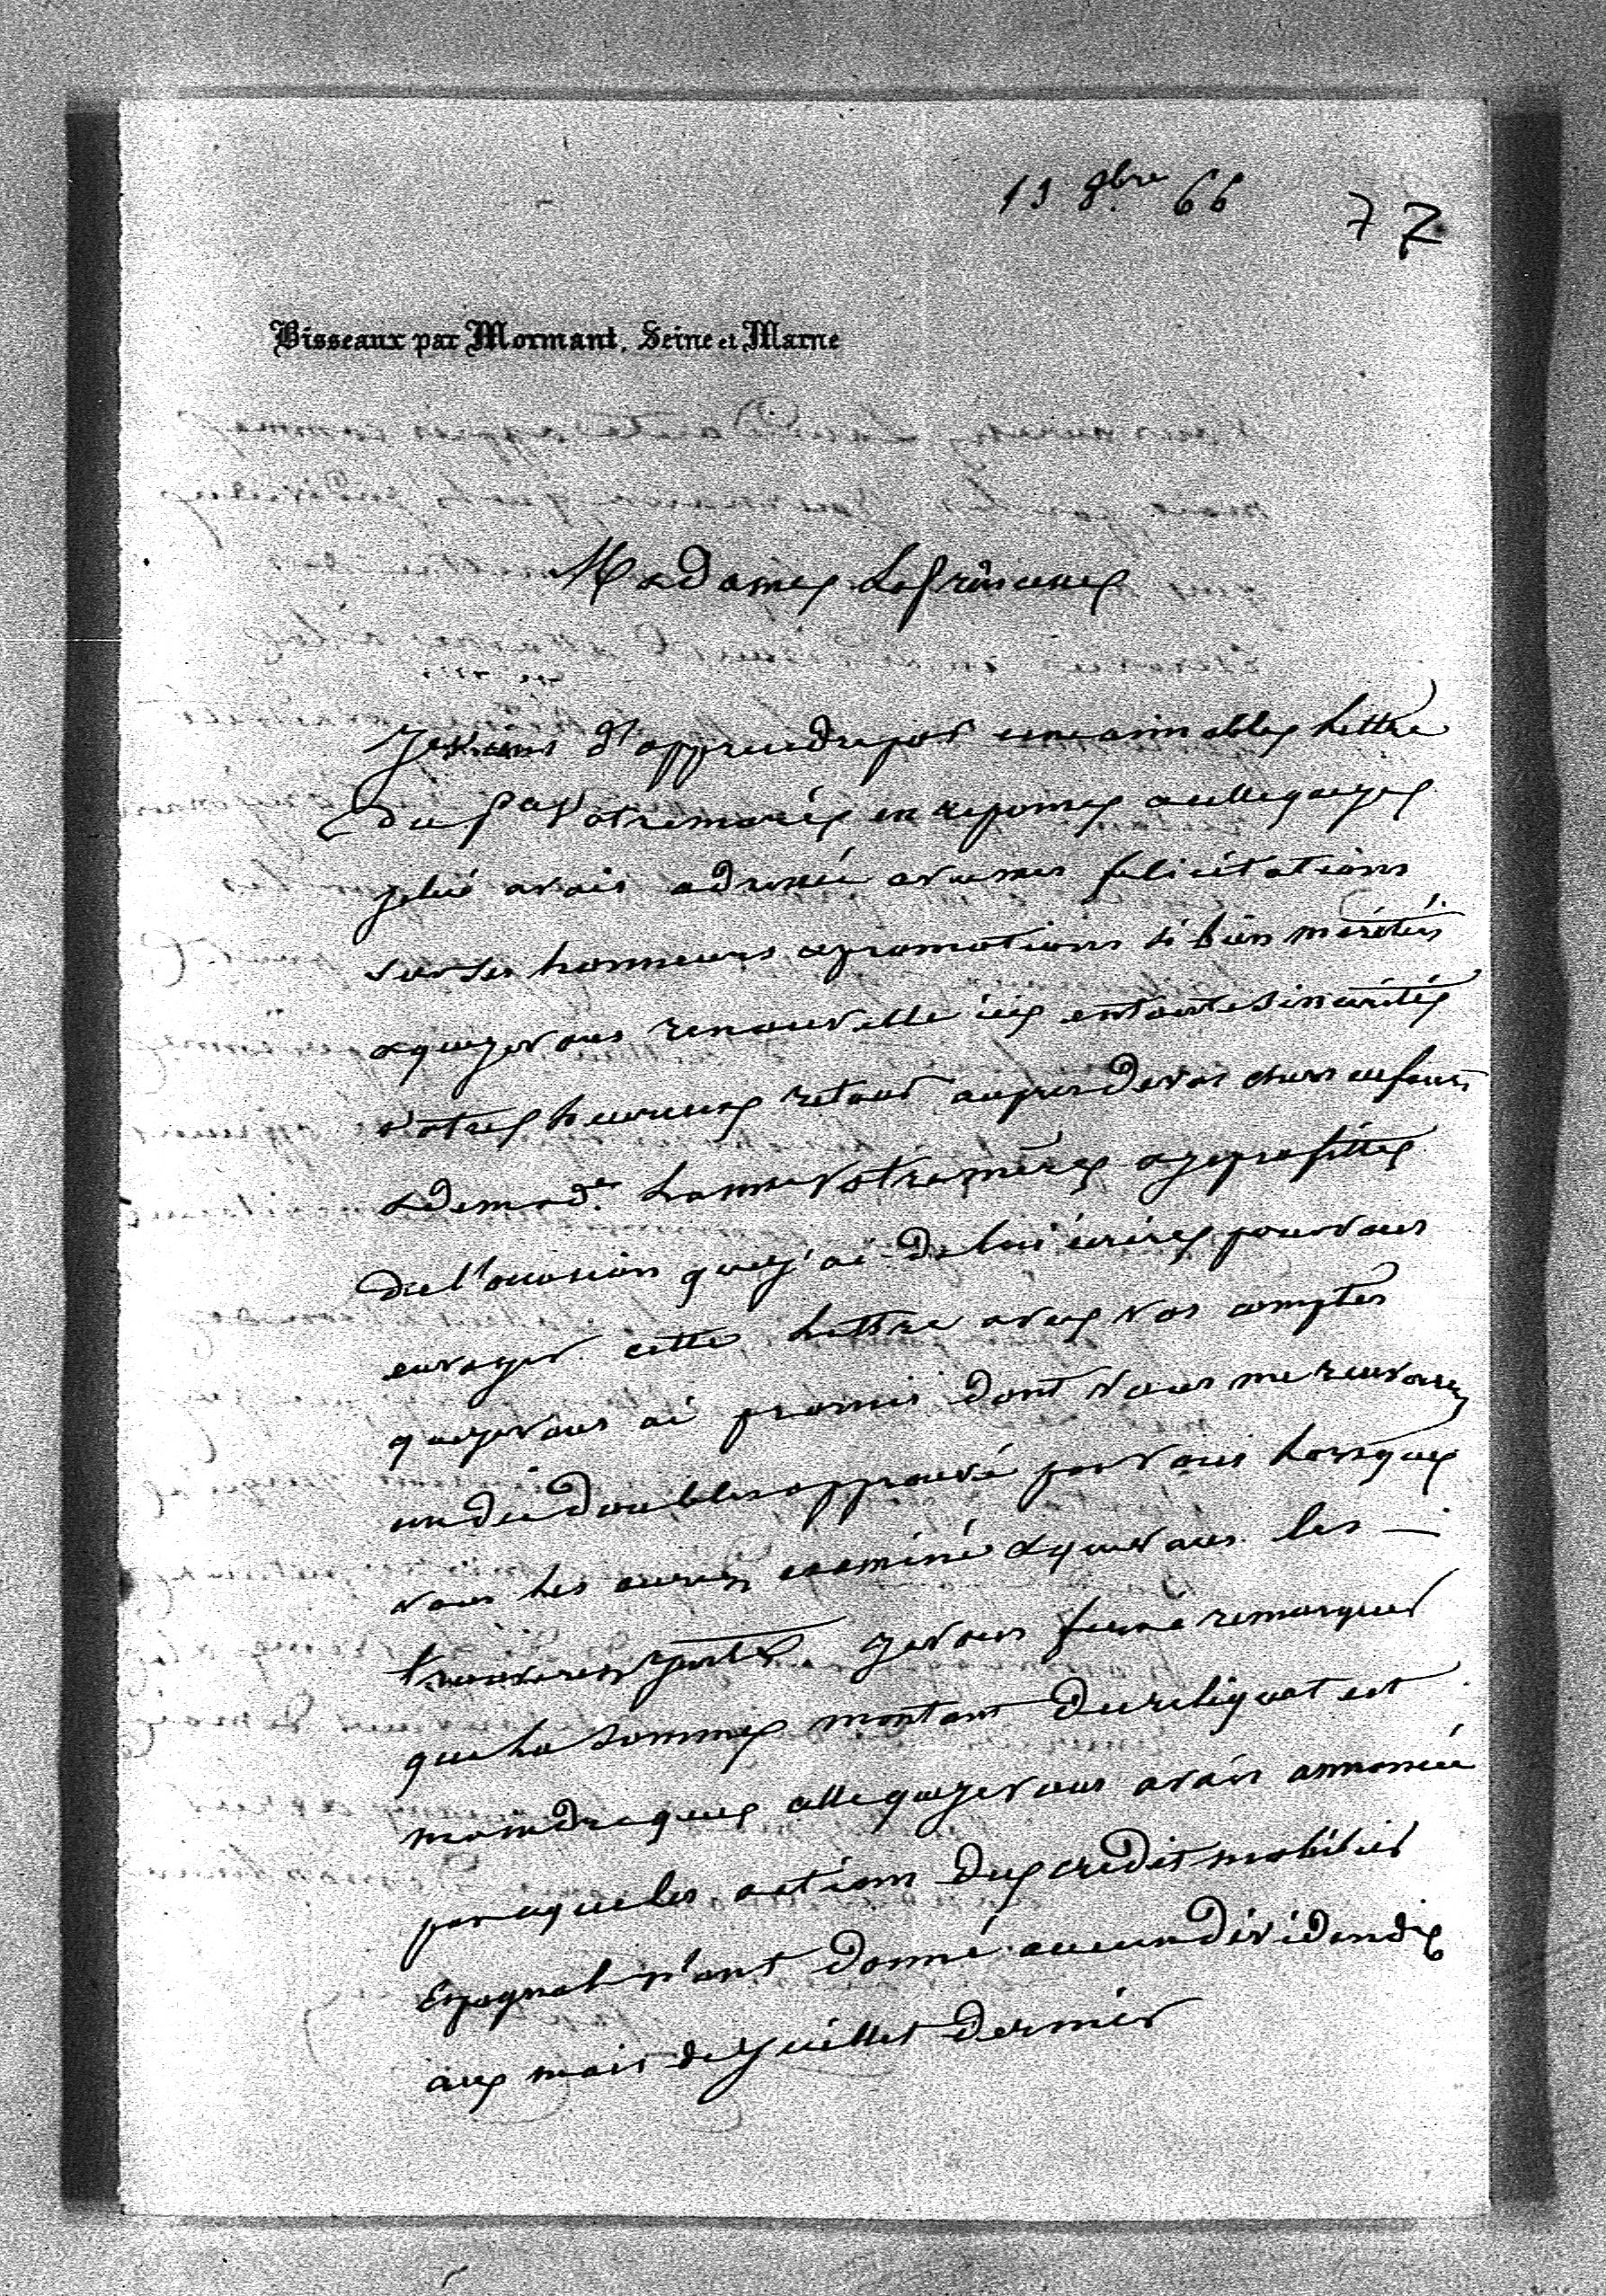 13 8bre 66
77
Bisseaux par Mormant, Seine et Marne
Madame La princesse
Je viens d'apprendre par une aimable Lettre
du Pce votre mari en reponse a celle que je
lui avais adressé avec mes felicitations
sur ses honneurs & promotions si bien mérités
& que je vous renouvelle ici en toute sincerité
votre heureux retour aupres de vos chers enfans
& de made. Votre mère & je profitte
de l'occasion que j'ai de lui écrire pour vous
envoyer cette Lettre avec vos comptes
que je vous ai promis dont vous me renverrez
un des doubles approuvé par vous Lorsque
vous les aurez examiné & que vous les
trouverez juste. Je vous ferai remarquer
que La somme montant du reliquat est
moindre que celle que je vous avais annoncée
parceque les actions du credit mobilier
Espagnol n'ont donné aucun dividende
au mois de Juillet dernier